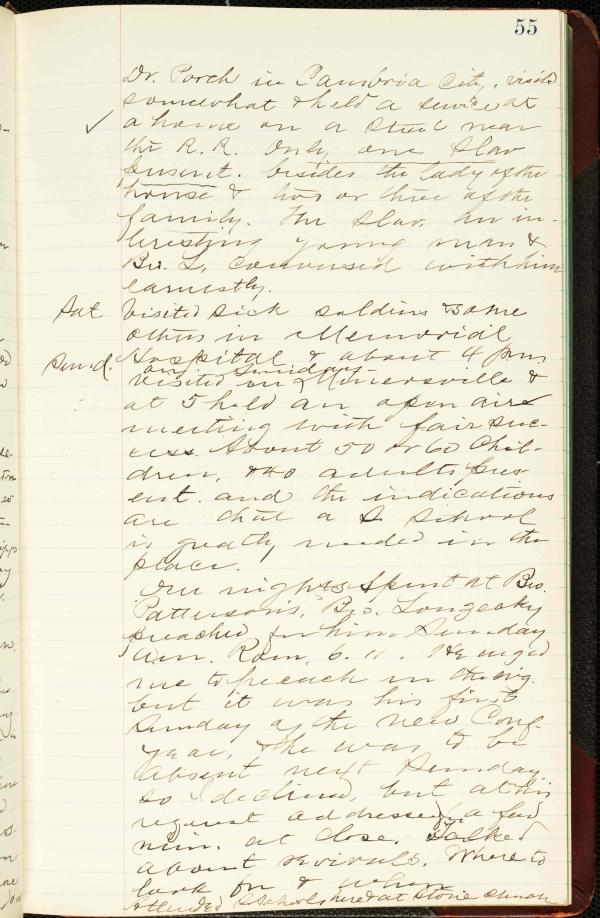 55
Dr. Porch in Cambria City, visited
somewhat & held a service at
✓ a house on a street near
the R. R. Only one Slav
present. besides the lady of the
house & two or three of the
family. The Slav. an in-
teresting young man &
Bro. L. conversed with him
earnestly.
Sat Visited sick soldiers & some
others in Memorial
Hospital & about 4 p.m.
Sund. on Sunday
visited in Minersville &
at 5 held an open air
meeting with fair suc-
cess. About 50 or 60 chil-
dren, & 40 adults pres-
ent. and the indications
are that a S. School
is greatly needed in the
place.
Our nights spent at Bro.
Patterson's, Bro.
preached for him Sunday
Rom. 6. 11. He urged
me to preach in the
but it was his first
Sunday of the new Conf.
year, & he was to be
absent next Sunday
so I declined, but at his
request addressed a few
min. at close. Talked
about revivals. Where to
look for & when
Attended S School here at Stone church